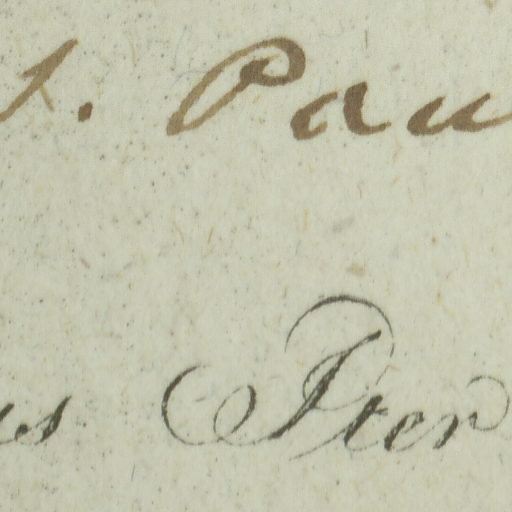 . Pau
us Iter